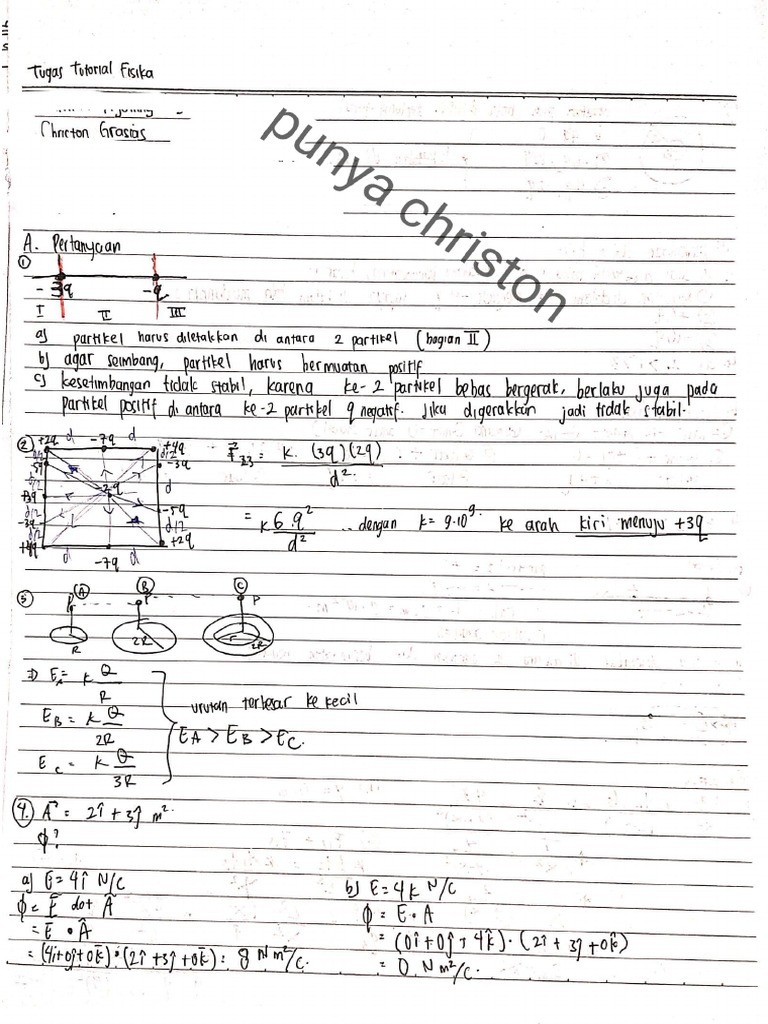 Tugas Tutorial Fisika
Christon Grasias
punya christon
A. Pertanyaan
①
- 3q - q
I II III
a) partikel harus diletakkan di antara 2 partikel (bagian II)
b) agar seimbang, partikel harus bermuatan positif
c) kesetimbangan tidak stabil, karena ke-2 partikel bebas bergerak, berlaku juga pada
partikel positif di antara ke-2 partikel q negatif. Jika digerakkan jadi tidak stabil.
②
+2q d -7q d +4q
d/2 d/2
-5q -3q
d/2
+3q -2q d
d/2 -5q
-3q d/2
d/2 +2q
+4q d -7q d
F₃₃ = k. (3q)(2q) / d².
= k 6.q² / d² .. dengan k = 9.10⁹. ke arah kiri menuju +3q
③ A B C
P P P
R 2R r 2R
⇒ E_A = k Q / R
E_B = k Q / 2R
E_C = k Q / 3R
urutan terbesar ke kecil
E_A > E_B > E_C.
④. A⃗ = 2î + 3ĵ m².
ϕ?
a) E = 4î N/C
ϕ = E dot A
= E • A
= (4î+0ĵ+0k̂)•(2î+3ĵ+0k̂) = 8 Nm²/C.
b) E = 4k N/C
ϕ = E • A
= (0î+0ĵ+4k̂)•(2î+3ĵ+0k̂)
= 0 Nm²/C.